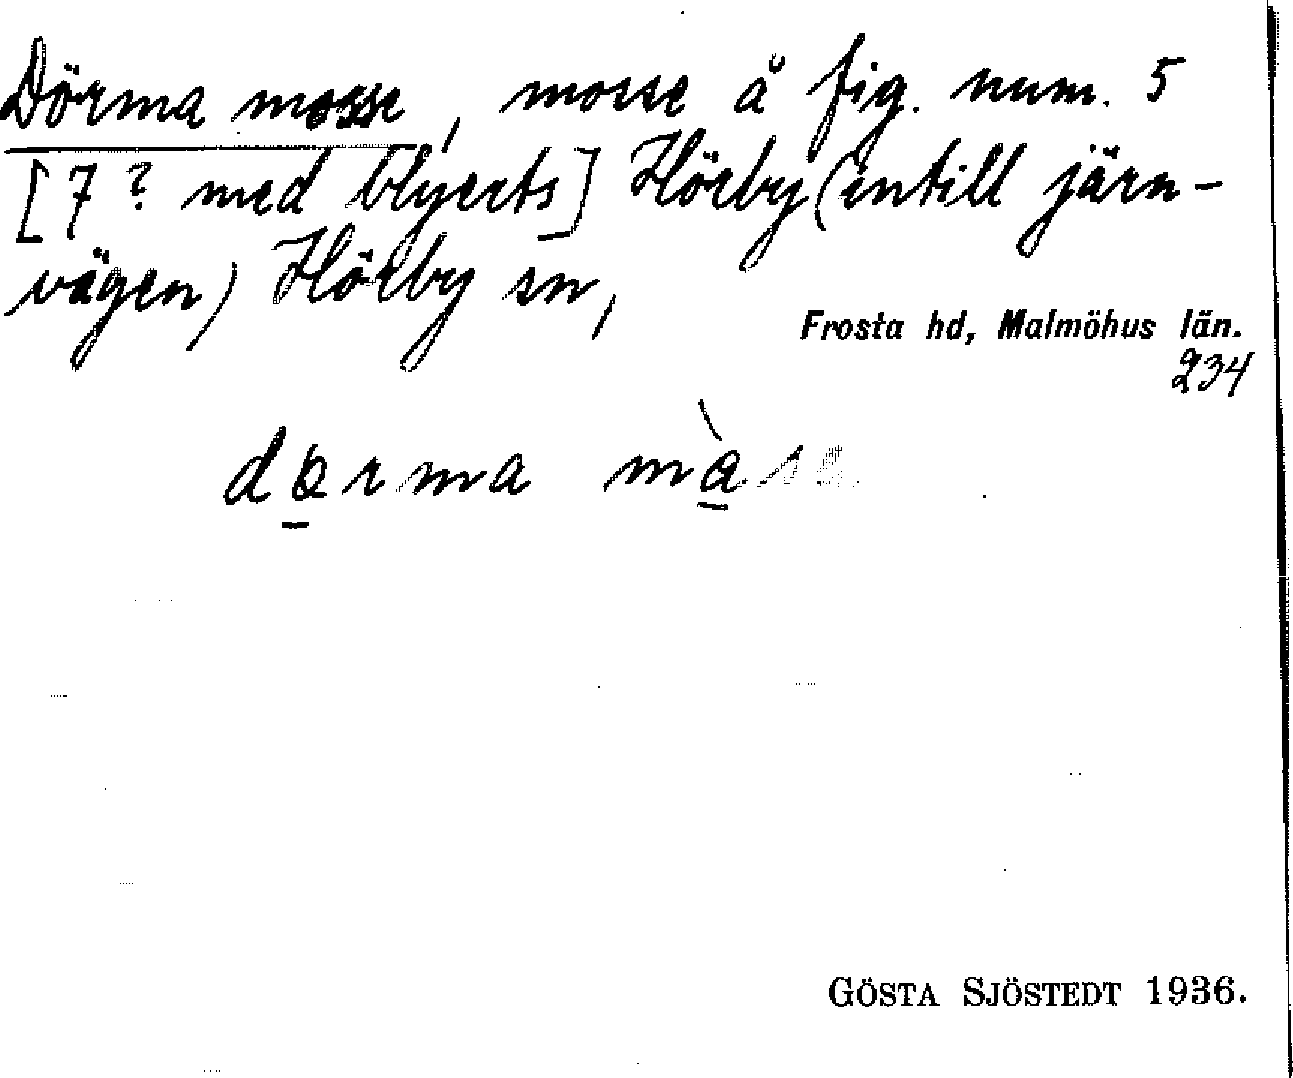 Dörma mosse, mosse å fig. num. 5
[7? med blyerts] Hörby (intill järn-
vägen) Hörby sn,
Frosta hd, Malmöhus län.
234
GÖSTA SJÖSTEDT 1936.